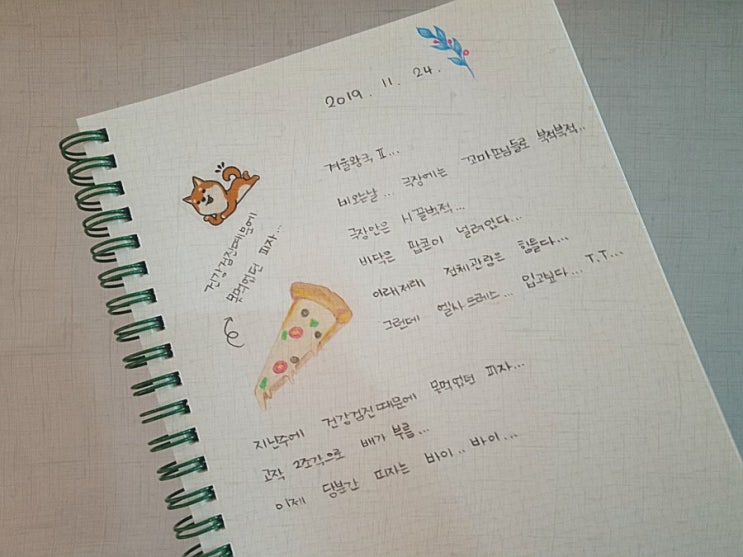 2019. 11. 24.
겨울왕국 Ⅱ...
비오는날... 극장에는 꼬마손님들로 북적북적..
극장안은 시끌벅적...
바닥은 팝콘이 널려있다...
이래저래 전체관람은 힘들다...
그런데 엘사 드레스... 입고싶다... T.T...
건강검진때문에
못먹었던 피자...
지난주에 건강검진때문에 못먹었던 피자...
고작 2조각으로 배가 부름...
이제 당분간 피자는 바이.. 바이...